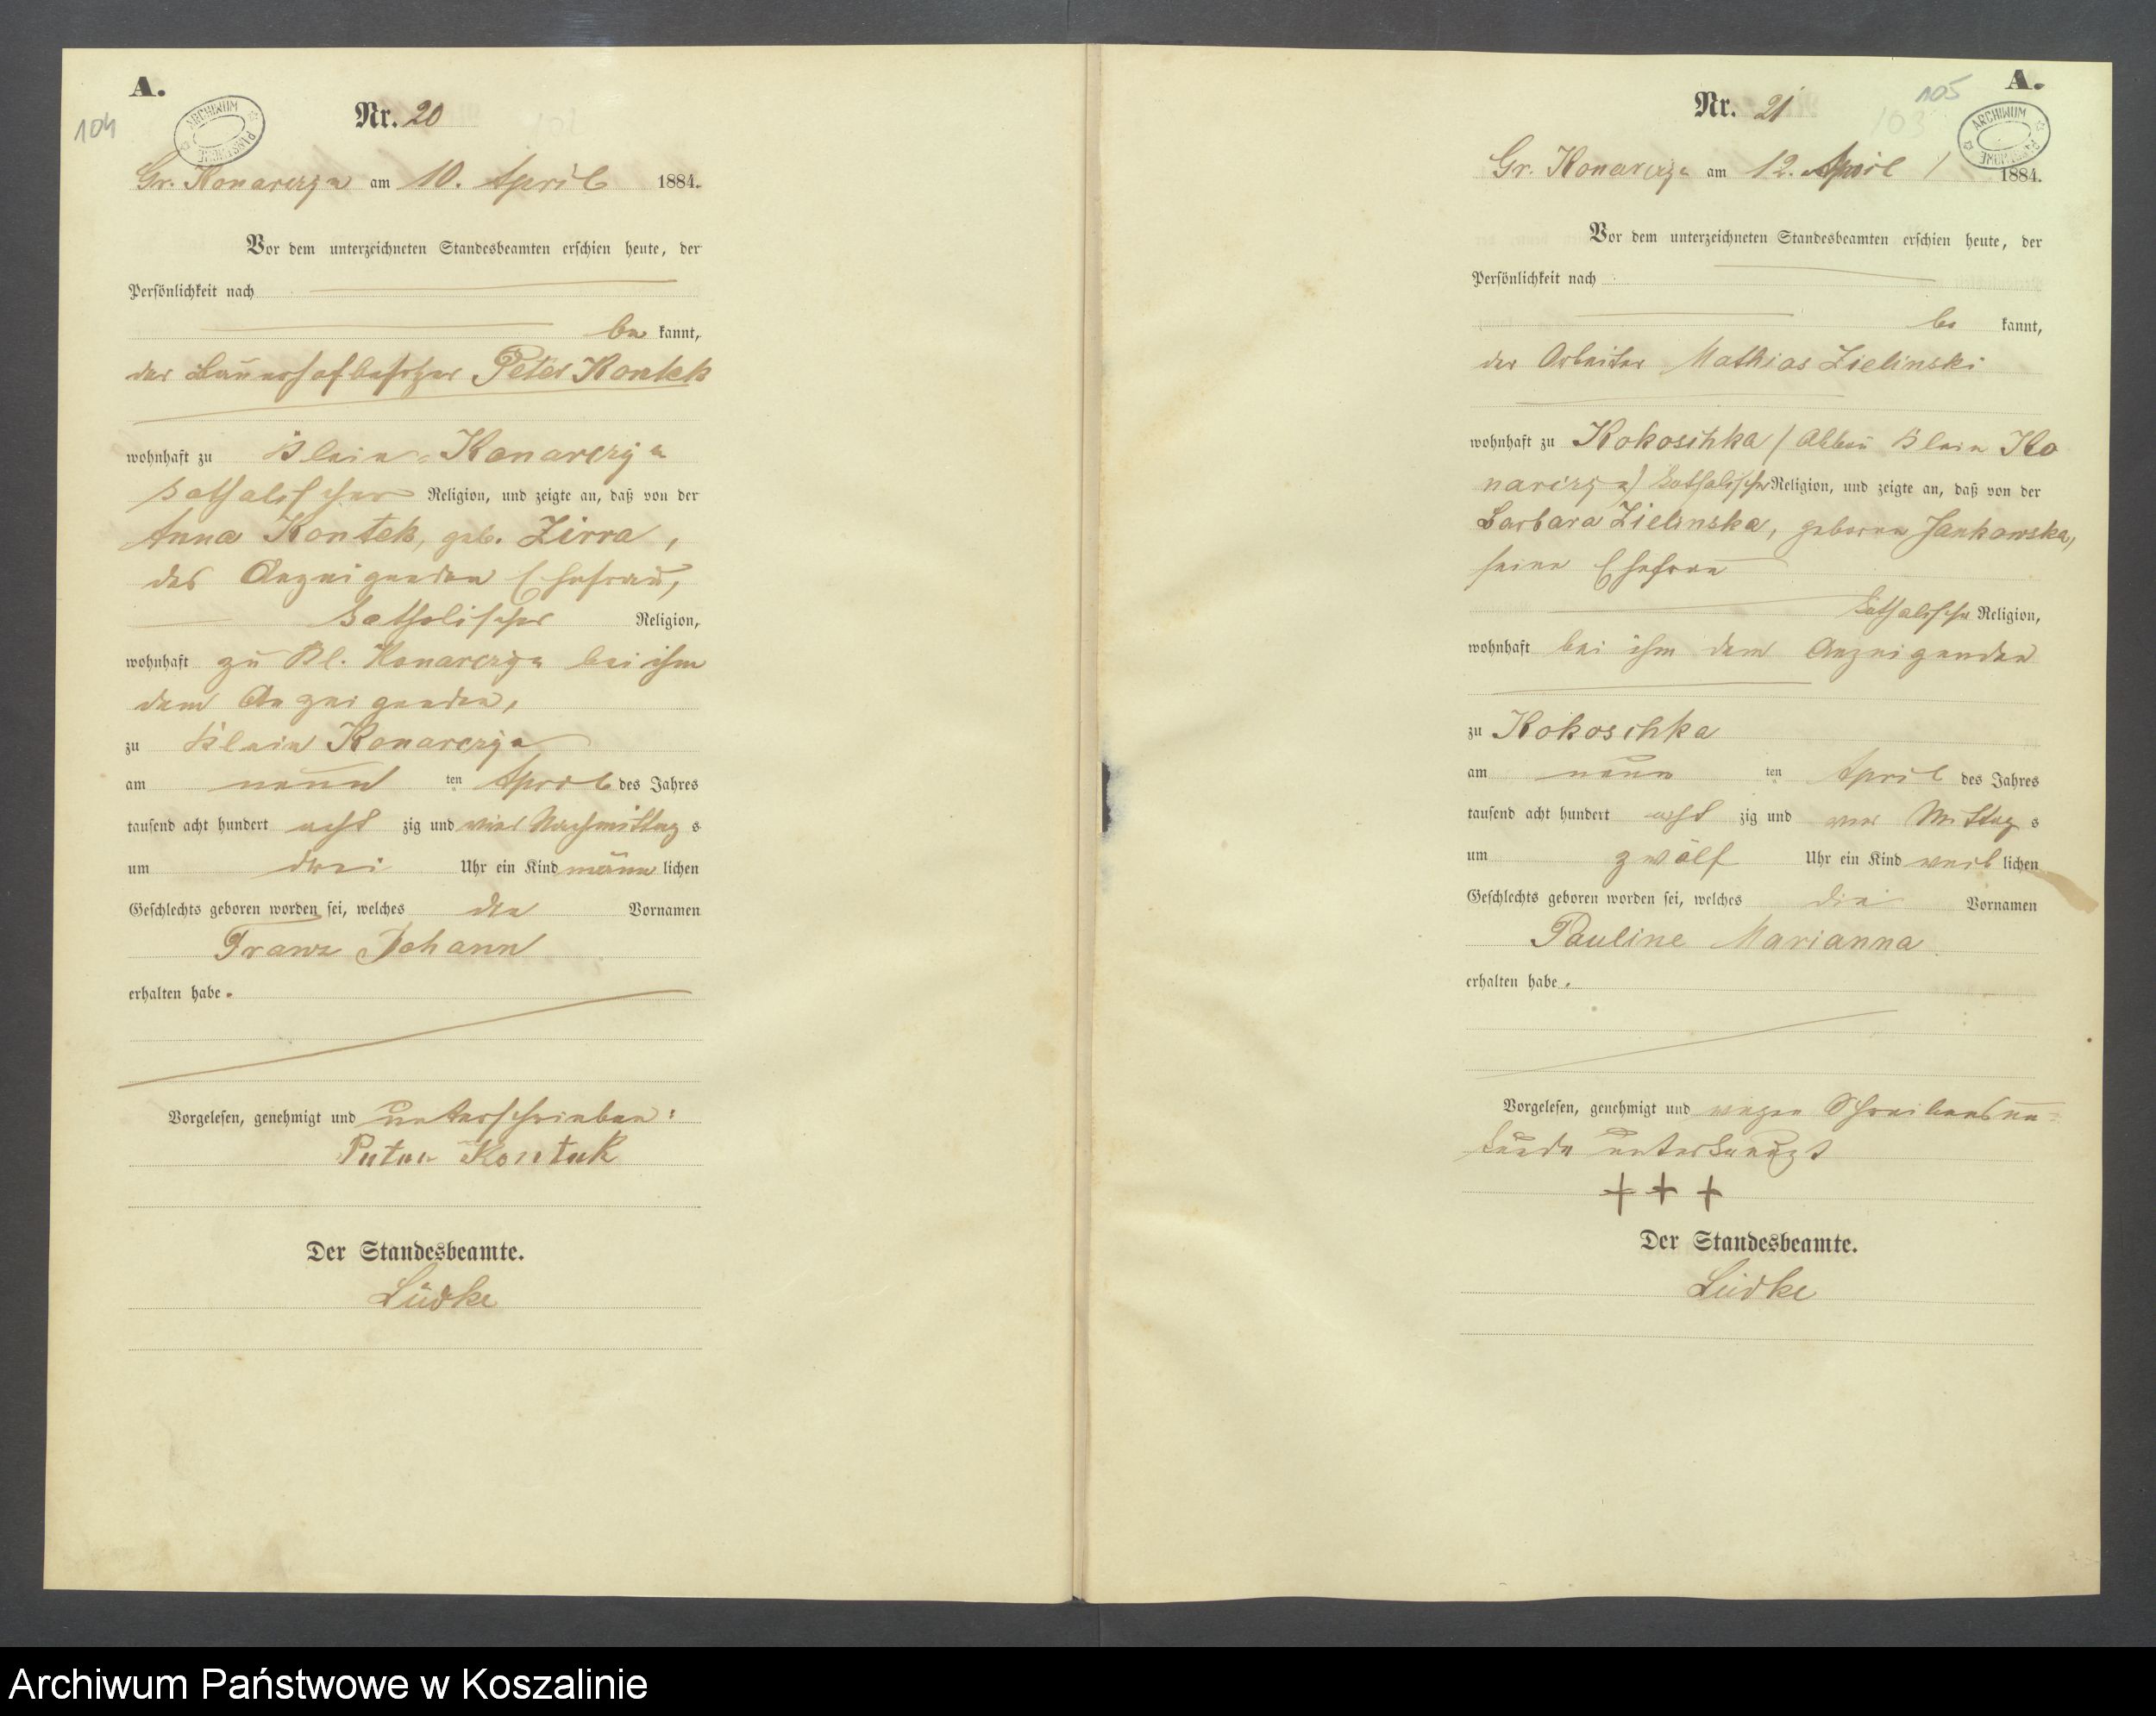 A.
104
ARCHIWUM PAŃSTWOWE
Nr. 20
Gr. Konarczyn am 10. April 1884.
Vor dem unterzeichneten Standesbeamten erschien heute, der
Persönlichkeit nach
be kannt,
der Bauerhofbesitzer Peter Kontek
wohnhaft zu Klein-Konarczyn
katholischer Religion, und zeigte an, daß von der
Anna Kontek, geb. Zirra,
des Anzeigenden Ehefrau,
katholischer Religion,
wohnhaft zu Kl. Konarczyn bei ihm
dem Anzeigenden,
zu Klein Konarczyn
am neun ten April des Jahres
tausend acht hundert acht zig und vier Nachmittag s
um drei Uhr ein Kind männ lichen
Geschlechts geboren worden sei, welches den Vornamen
Franz Johann
erhalten habe.
Vorgelesen, genehmigt und unterschrieben:
Peter Kontek
Der Standesbeamte.
Lüdke
A.
105
103
ARCHIWUM PAŃSTWOWE
Nr. 21
Gr. Konarczyn am 12. April 1884.
Vor dem unterzeichneten Standesbeamten erschien heute, der
Persönlichkeit nach
be kannt,
der Arbeiter Mathias Zielinski
wohnhaft zu Kokoschka (Abbau Klein Ko
narczyn) katholischer Religion, und zeigte an, daß von der
Barbara Zielinska, geborne Jankowska,
seine Ehefrau
katholischer Religion,
wohnhaft bei ihm dem Anzeigenden
zu Kokoschka
am neun ten April des Jahres
tausend acht hundert acht zig und vier Mittag s
um zwölf Uhr ein Kind weib lichen
Geschlechts geboren worden sei, welches die Vornamen
Pauline Marianna
erhalten habe.
Vorgelesen, genehmigt und wegen Schreibensun-
kunde unterkreuzt
+ + +
Der Standesbeamte.
Lüdke
Archiwum Państwowe w Koszalinie